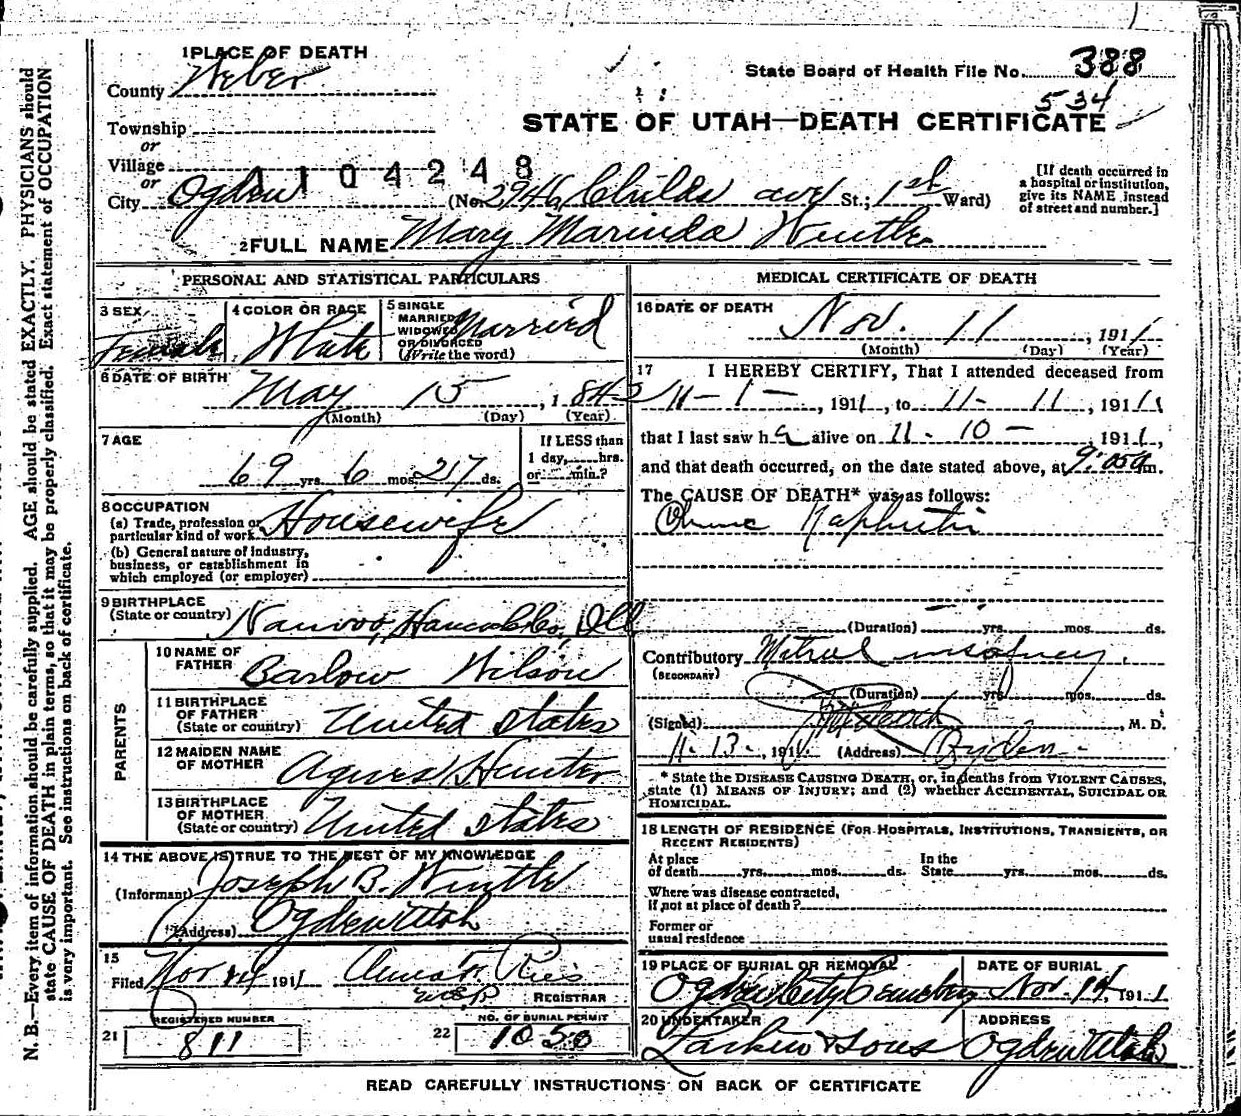 1 PLACE OF DEATH
County Weber
State Board of Health File No. 388
534
Township
or
Village
or
1104248
STATE OF UTAH—DEATH CERTIFICATE
City Ogden (No. 2946 Childs ave St.; 1st Ward)
[If death occurred in
a hospital or institution,
give its NAME instead
of street and number.]
2 FULL NAME Mary Marinda Wintle
PERSONAL AND STATISTICAL PARTICULARS
3 SEX Female
4 COLOR OR RACE White
5 SINGLE
MARRIED
WIDOWED
OR DIVORCED
(Write the word) Married
6 DATE OF BIRTH May 15, 1842
(Month) (Day) (Year)
7 AGE 69 yrs. 6 mos. 27 ds.
If LESS than
1 day, hrs.
or min.?
8 OCCUPATION
(a) Trade, profession or
particular kind of work Housewife
(b) General nature of industry,
business, or establishment in
which employed (or employer)
9 BIRTHPLACE
(State or country) Nauvoo, Hancock Co, Ill
PARENTS
10 NAME OF
FATHER Barlow Wilson
11 BIRTHPLACE
OF FATHER
(State or country) United States
12 MAIDEN NAME
OF MOTHER Agnes Hunter
13 BIRTHPLACE
OF MOTHER
(State or country) United States
14 THE ABOVE IS TRUE TO THE BEST OF MY KNOWLEDGE
(Informant) Joseph B. Wintle
(Address) Ogden Utah
15
Filed Nov 14 1911
REGISTRAR
21 REGISTERED NUMBER
811
22 NO. OF BURIAL PERMIT
1050
MEDICAL CERTIFICATE OF DEATH
16 DATE OF DEATH
Nov. 11, 1911
(Month) (Day) (Year)
17 I HEREBY CERTIFY, That I attended deceased from
11-1-, 1911, to 11-11, 1911,
that I last saw h alive on 11-10-, 1911,
and that death occurred, on the date stated above, at 9:05am.
The CAUSE OF DEATH* was as follows:
(Duration) yrs. mos. ds.
Contributory Mitral
(SECONDARY)
(Duration) yrs. mos. ds.
(Signed) , M. D.
11-13-, 1911 (Address) Ogden-
* State the DISEASE CAUSING DEATH, or, in deaths from VIOLENT CAUSES,
state (1) MEANS OF INJURY; and (2) whether ACCIDENTAL, SUICIDAL OR
HOMICIDAL.
18 LENGTH OF RESIDENCE (FOR HOSPITALS, INSTITUTIONS, TRANSIENTS, OR
RECENT RESIDENTS)
At place
of death yrs. mos. ds.
In the
State yrs. mos. ds.
Where was disease contracted,
if not at place of death?
Former or
usual residence
19 PLACE OF BURIAL OR REMOVAL
Ogden City Cemetery
DATE OF BURIAL
Nov. 14, 1911
20 UNDERTAKER
Larkin & Sons
ADDRESS
Ogden Utah
READ CAREFULLY INSTRUCTIONS ON BACK OF CERTIFICATE
N. B.—Every item of information should be carefully supplied. AGE should be stated EXACTLY. PHYSICIANS should
state CAUSE OF DEATH in plain terms, so that it may be properly classified. Exact statement of OCCUPATION
is very important. See instructions on back of certificate.